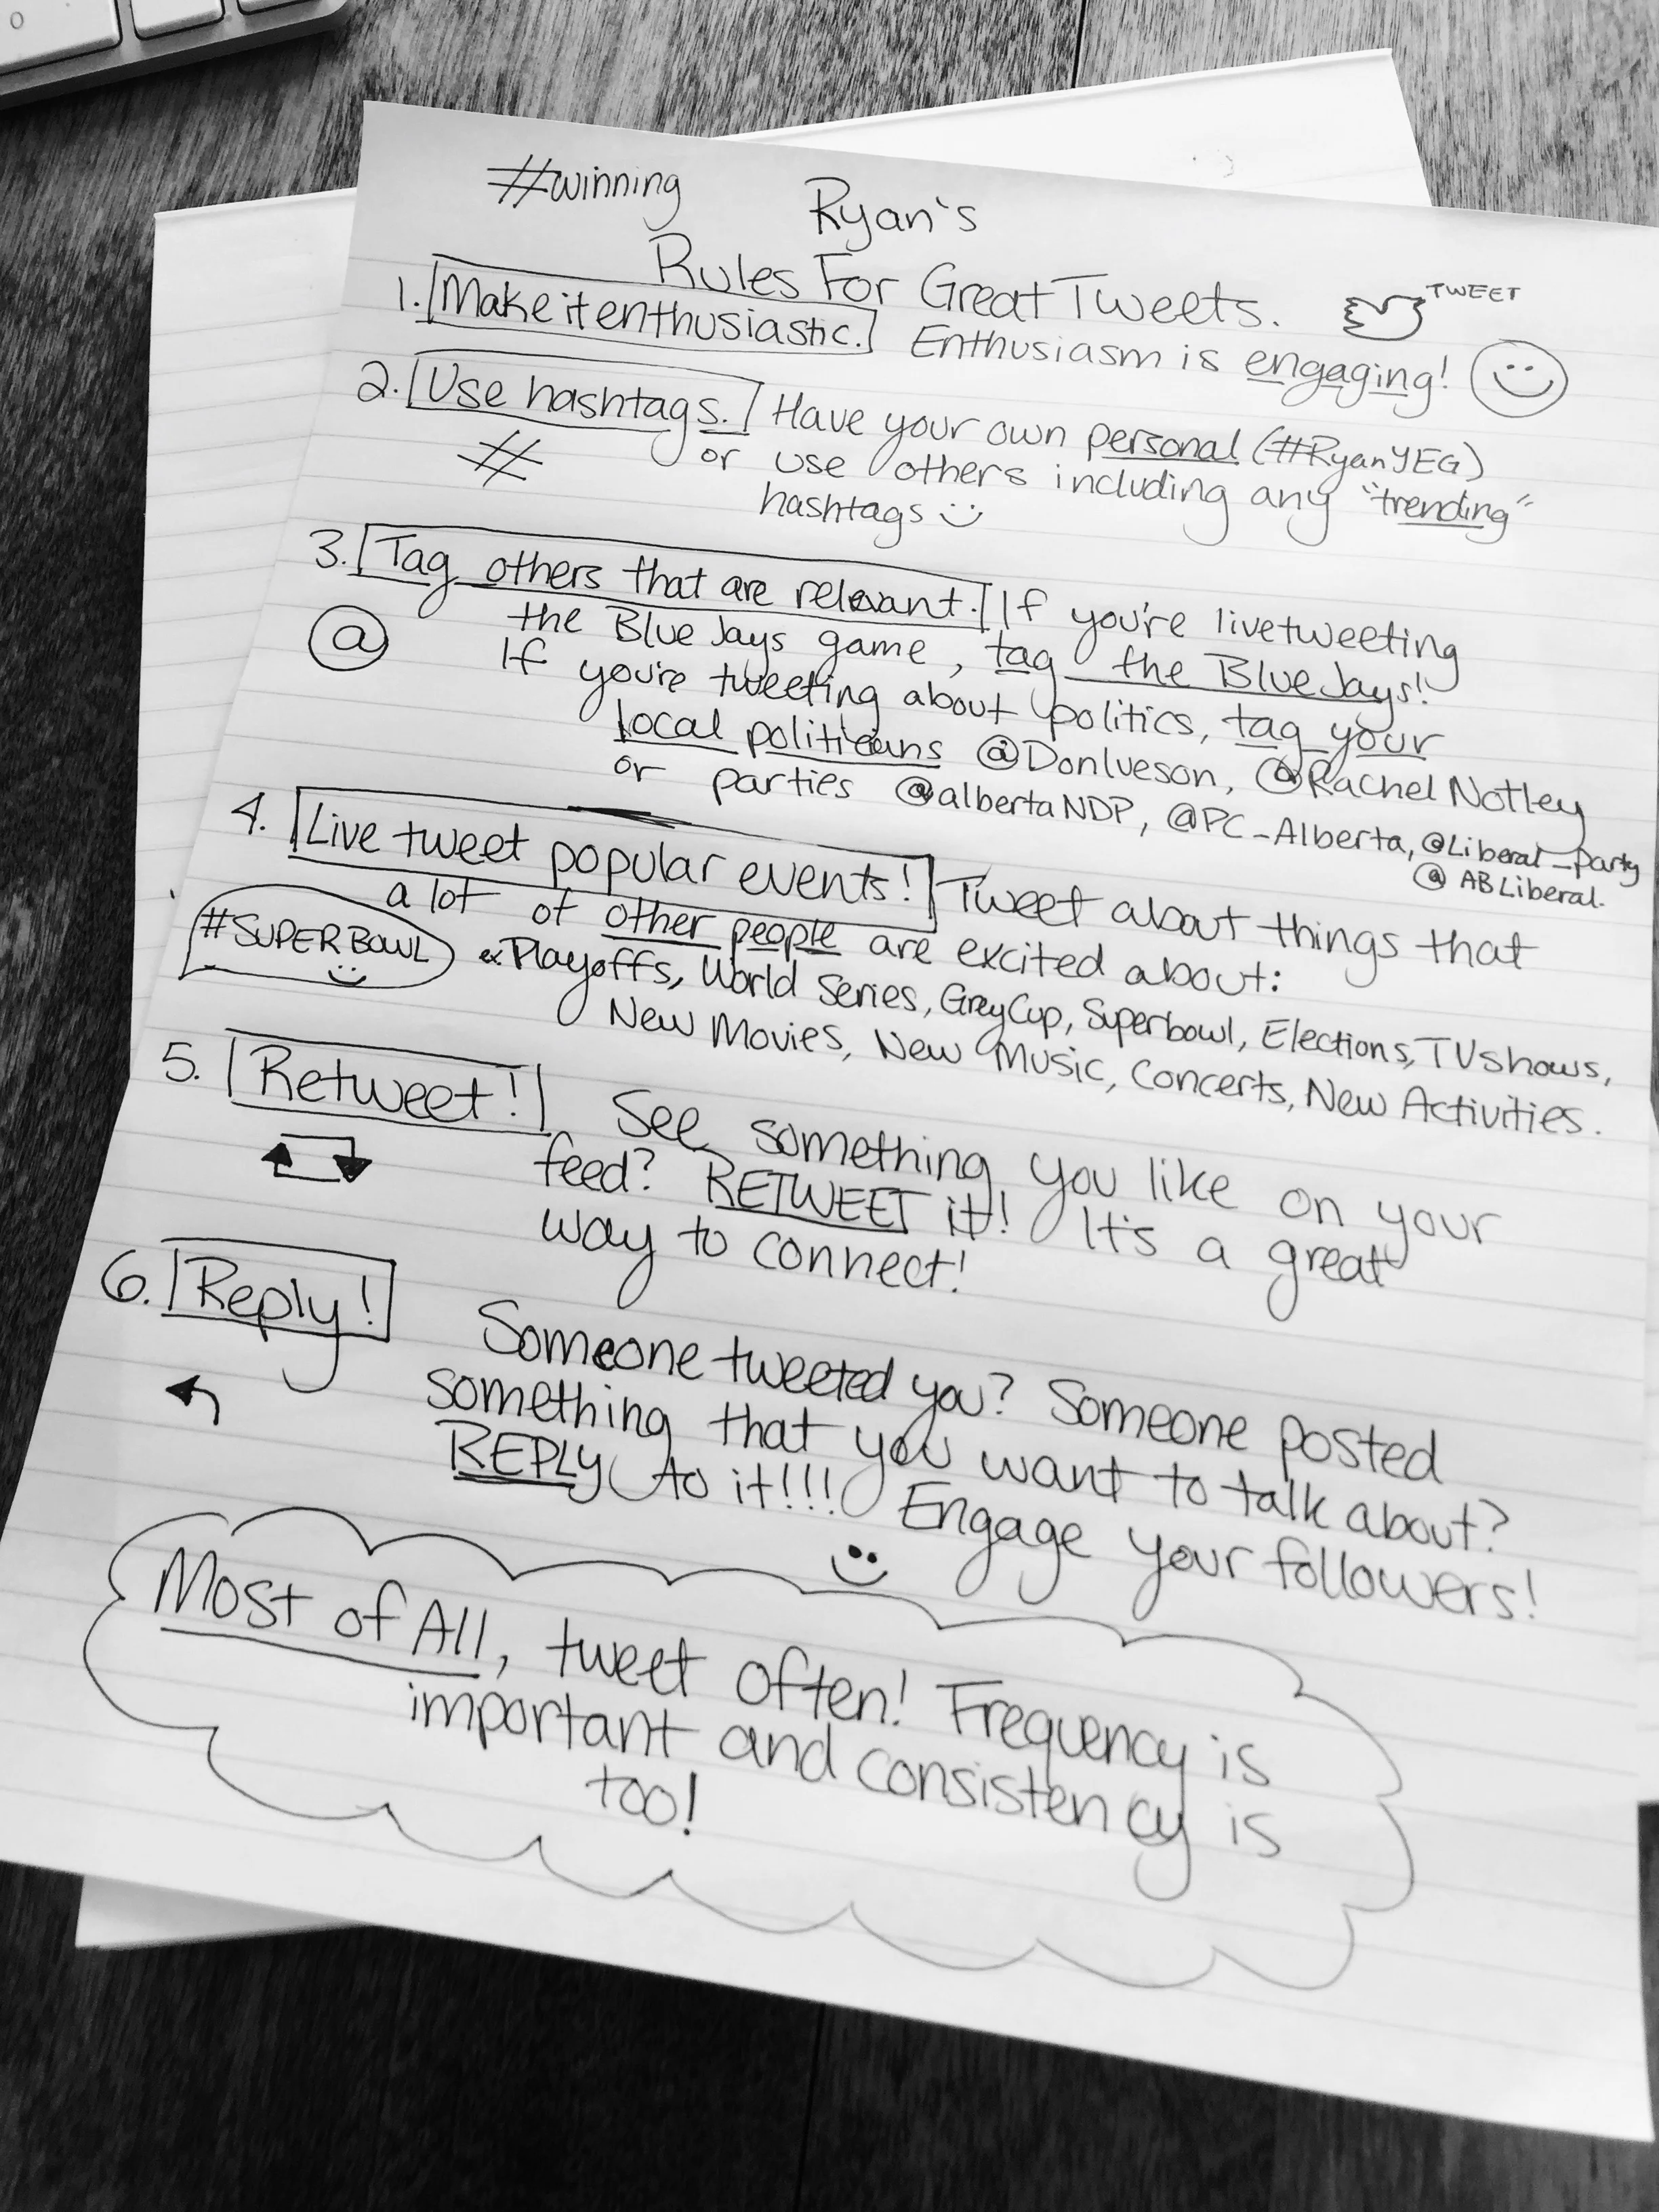 #winning
Ryan's
Rules For Great Tweets.
TWEET
1. Make it enthusiastic. Enthusiasm is engaging!
2. Use hashtags. Have your own personal (#RyanYEG)
# or use others including any "trending"
hashtags
3. Tag others that are relevant. If you're livetweeting
@ the Blue Jays game, tag the Blue Jays!
If you're tweeting about politics, tag your
local politicians @DonIveson, @Rachel Notley
or parties @albertaNDP, @PC_Alberta, @Liberal_party
@ABLiberal.
4. Live tweet popular events! Tweet about things that
a lot of other people are excited about:
#SUPERBOWL Playoffs, World Series, Grey Cup, Superbowl, Elections, TV shows,
New Movies, New Music, Concerts, New Activities.
5. Retweet! See something you like on your
feed? RETWEET it! It's a great
way to connect!
6. Reply! Someone tweeted you? Someone posted
something that you want to talk about?
REPLY to it!!! Engage your followers!
Most of All, tweet often! Frequency is
important and consistency is
too!